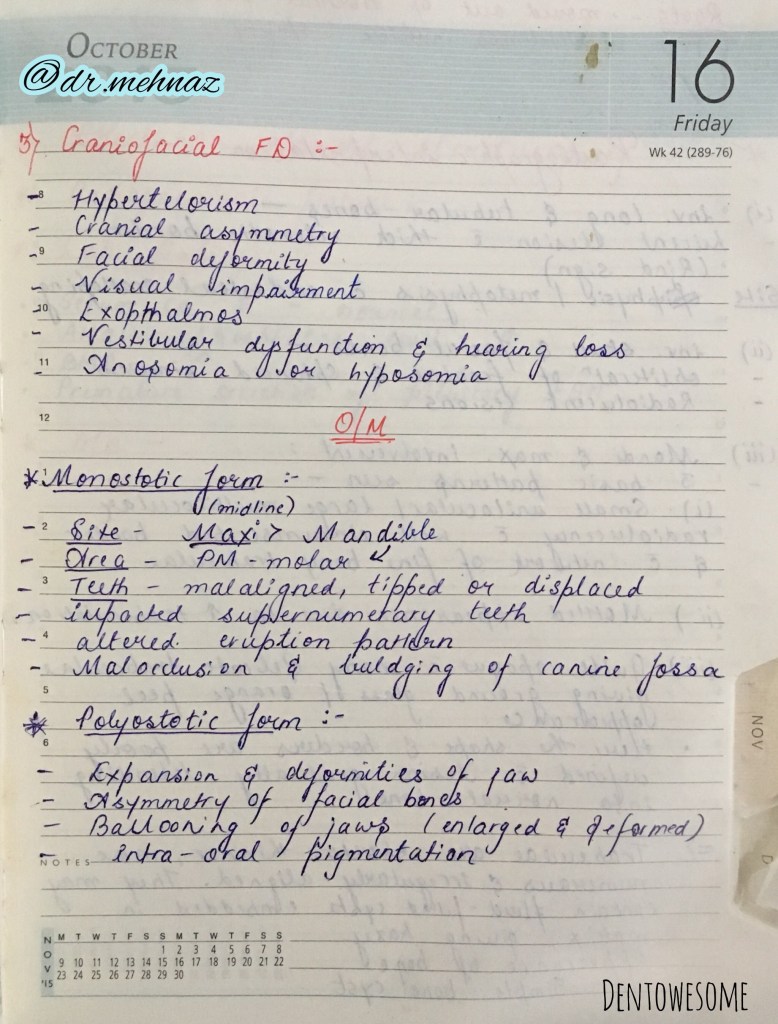 OCTOBER
@dr.mehnaz
16
Friday
Wk 42 (289-76)
3) Craniofacial FD :-
8
- Hypertelorism
- Cranial asymmetry
9
- Facial deformity
- Visual impairment
10
- Exopthalmos
- Vestibular dysfunction & hearing loss
11
- Anosomia or hyposomia
12
O/M
* Monostotic form :-
(midline)
2
- Site - Maxi > Mandible
- Area - PM - molar ↙
3
- Teeth - malaligned, tipped or displaced
- impacted supernumerary teeth
4
- altered. eruption pattern
- Malocclusion & buldging of canine fossa
5
* Polyostotic form :-
6
- Expansion & deformities of jaw
- Asymmetry of facial bones
- Ballooning of jaws (enlarged & deformed)
- intra-oral pigmentation
NOTES
NOV
D
NOV '15
M T W T F S S M T W T F S S
1 2 3 4 5 6 7 8
9 10 11 12 13 14 15 16 17 18 19 20 21 22
23 24 25 26 27 28 29 30
DENTOWESOME